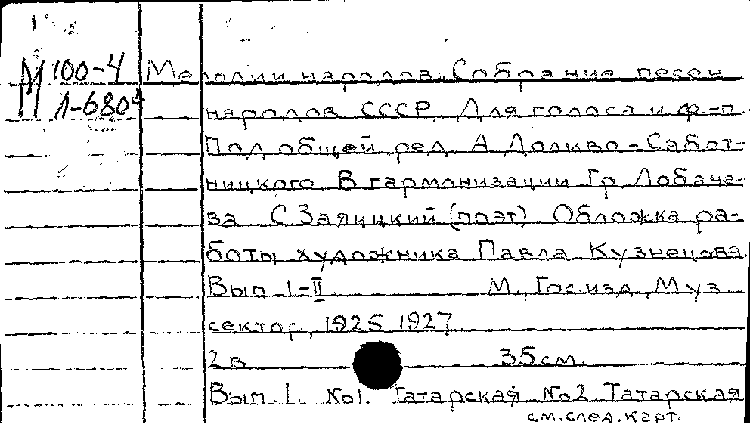 М 100-4 Мелодии народов. Собрание песен
Л-6804 народов СССР. Для голоса и ф-п
Под общей ред. А Доливо-Сабот-
ницкого В гармонизации Гр Лобаче-
ва С Заяицкий (поэт) Обложка ра-
боты художника Павла Кузнецова
Вып I-II М., Госизд, Муз
сектор, 1925 1927
2 в 35 см.
Вып. 1. №1. Татарская №2 Татарская
см.след.карт.